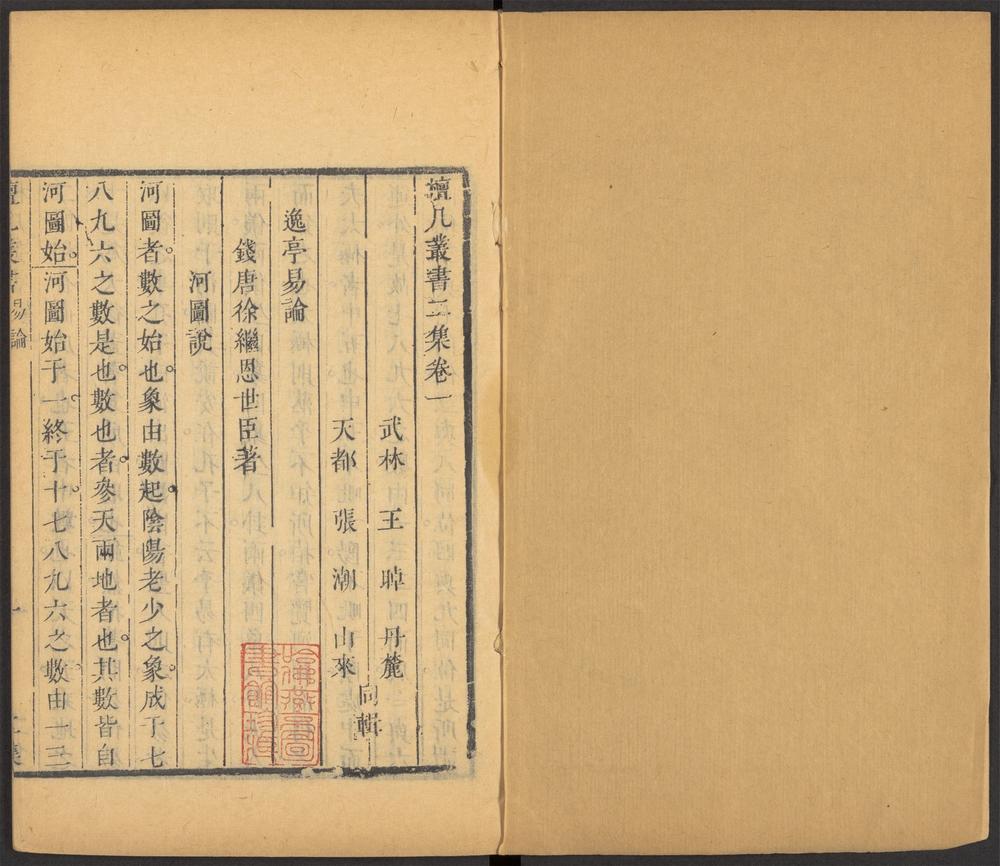 檀几叢書二集卷一
武林 王晫 丹麓
天都 張潮 山來
同輯
逸亭易論
錢唐徐繼恩世臣著
河圖說
河圖者數之始也象由數起陰陽老少之象成于七
八九六之數是也數也者參天兩地者也其數皆自
河圖始河圖始于一終于十七八九六之數由一三